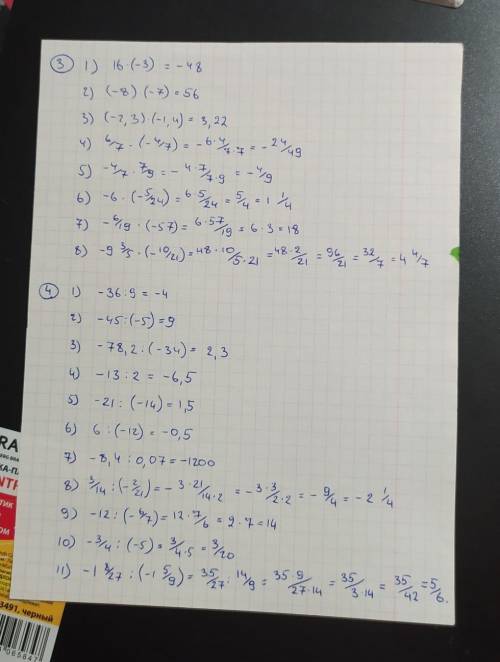 ③ 1) 16·(-3) = -48
2) (-8)(-7) = 56
3) (-2,3)·(-1,4) = 3,22
4) 6/7 · (-4/7) = -6·4/7·7 = -24/49
5) -4/7 · 7/9 = -4·7/7·9 = -4/9
6) -6·(-5/24) = 6·5/24 = 5/4 = 1 1/4
7) -6/19 · (-57) = 6·57/19 = 6·3 = 18
8) -9 3/5 · (-10/21) = 48·10/5·21 = 48·2/21 = 96/21 = 32/7 = 4 4/7
④ 1) -36:9 = -4
2) -45:(-5) = 9
3) -78,2:(-34) = 2,3
4) -13:2 = -6,5
5) -21:(-14) = 1,5
6) 6:(-12) = -0,5
7) -8,4:0,07 = -1200
8) 3/14 : (-2/21) = -3·21/14·2 = -3·3/2·2 = -9/4 = -2 1/4
9) -12:(-6/7) = 12·7/6 = 2·7 = 14
10) -3/4 : (-5) = 3/4·5 = 3/20
11) -1 8/27 : (-1 5/9) = 35/27 : 14/9 = 35·9/27·14 = 35/3·14 = 35/42 = 5/6.
3491, черный